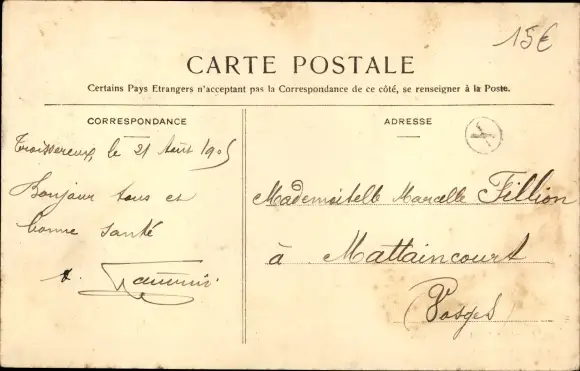 15€
CARTE POSTALE
Certains Pays Etrangers n'acceptant pas la Correspondance de ce côté, se renseigner à la Poste.
CORRESPONDANCE
Troissereux, le 21 Août 1905
Bonjour tous et
bonne santé
ADRESSE
Mademoiselle Marcelle Fillion
à Mattaincourt
(Vosges)